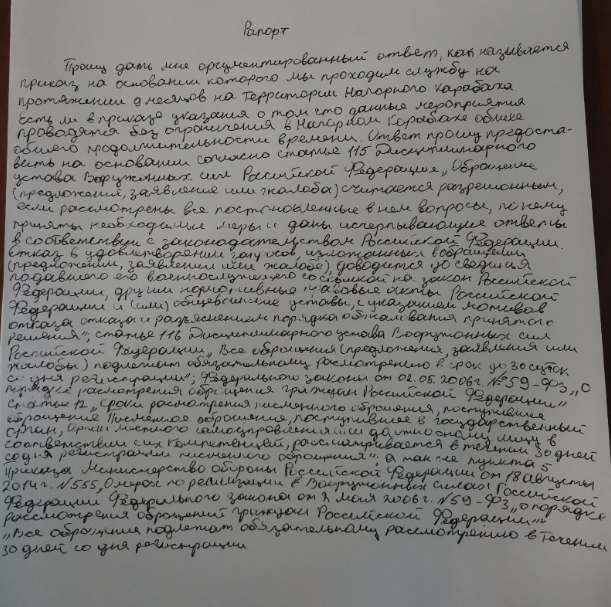 Рапорт
Прошу дать мне аргументированный ответ, как называется
приказ на основании которого мы проходим службу на
протяжении 9 месяцов на территории Нагорного Карабаха.
Есть ли в приказе указания о том сто данные мероприятия
проводятся без ограничения в Нагорном Карабахе общее
общего продолжительности времени. Ответ прошу предоста-
вить на основании согласно статье 115 Дисциплинарного
устава Вооруженных сил Российской Федерации „Обращение
(предложения, заявление или жалоба) считается разрешонным,
если рассмотрены все постановленные в нем вопросы, по нему
приняты необходимые меры и даны исчерпывающие ответы
в соответствии с законодательством Российской Федерации.
Отказ в удовлетворении запросов, изложанных в обращении
(предложении, заявлении или жалобе), доводится до сведения
подавшего его военнослужащего со ссылкой на закон Российской
Федерации, другии нормативные правовые акты Российской
Федерации и (или) общевоинские уставы, с указанием мотивов
отказа отказа и разъяснением порядка обжалования принятого
решения"; статье 116 Дисциплинарного устава Вооружонных сил
Российской Федерации „Все обращения (предложения, заявления или
жалобы) подлежат обязательному расмотрению в срок до 30 суток
со дня регистрации"; Федерального законы от 02.05.2006г. №59-ФЗ „О
порядке расмотрения обращения граждан Российской Федерации"
статье 12, сроки расмотрения писменного обращения, поступившие
обращение Писменное обращение, поступившее в государственный
орган, органы местного самоуправления или должностному лицу в
соответствии с их компетенцией, рассматривается в течении 30 дней
со дня регистрации писменного обращения". а так же пункта 5
приказа Министерство обороны Российской Федерации от 18 августы
2014г. №555, О мерах по реализации в Вооружонных силах Российской
Федерации Федерального закона от 2 мая 2006г. №59-ФЗ „о порядке
рассмотрения обращений граждан Российской Федерации""
„Все обращения подлежат обязательному рассмотрению в течении
30 дней со дня регистрации